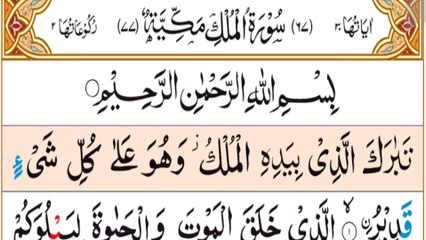 اٰیَاتُهَا ٣٠ (٦٧) سُوْرَةُ الْمُلْكِ مَكِّیَّةٌ (٧٧) رُكُوْعَاتُهَا ٢
بِسْمِ اللهِ الرَّحْمٰنِ الرَّحِیْمِ
تَبٰرَكَ الَّذِیْ بِیَدِهِ الْمُلْكُ ؗ وَهُوَ عَلٰی كُلِّ شَیْءٍ
قَدِیْرُ ۙ ۝١ الَّذِیْ خَلَقَ الْمَوْتَ وَالْحَیٰوةَ لِیَبْلُوَكُمْ